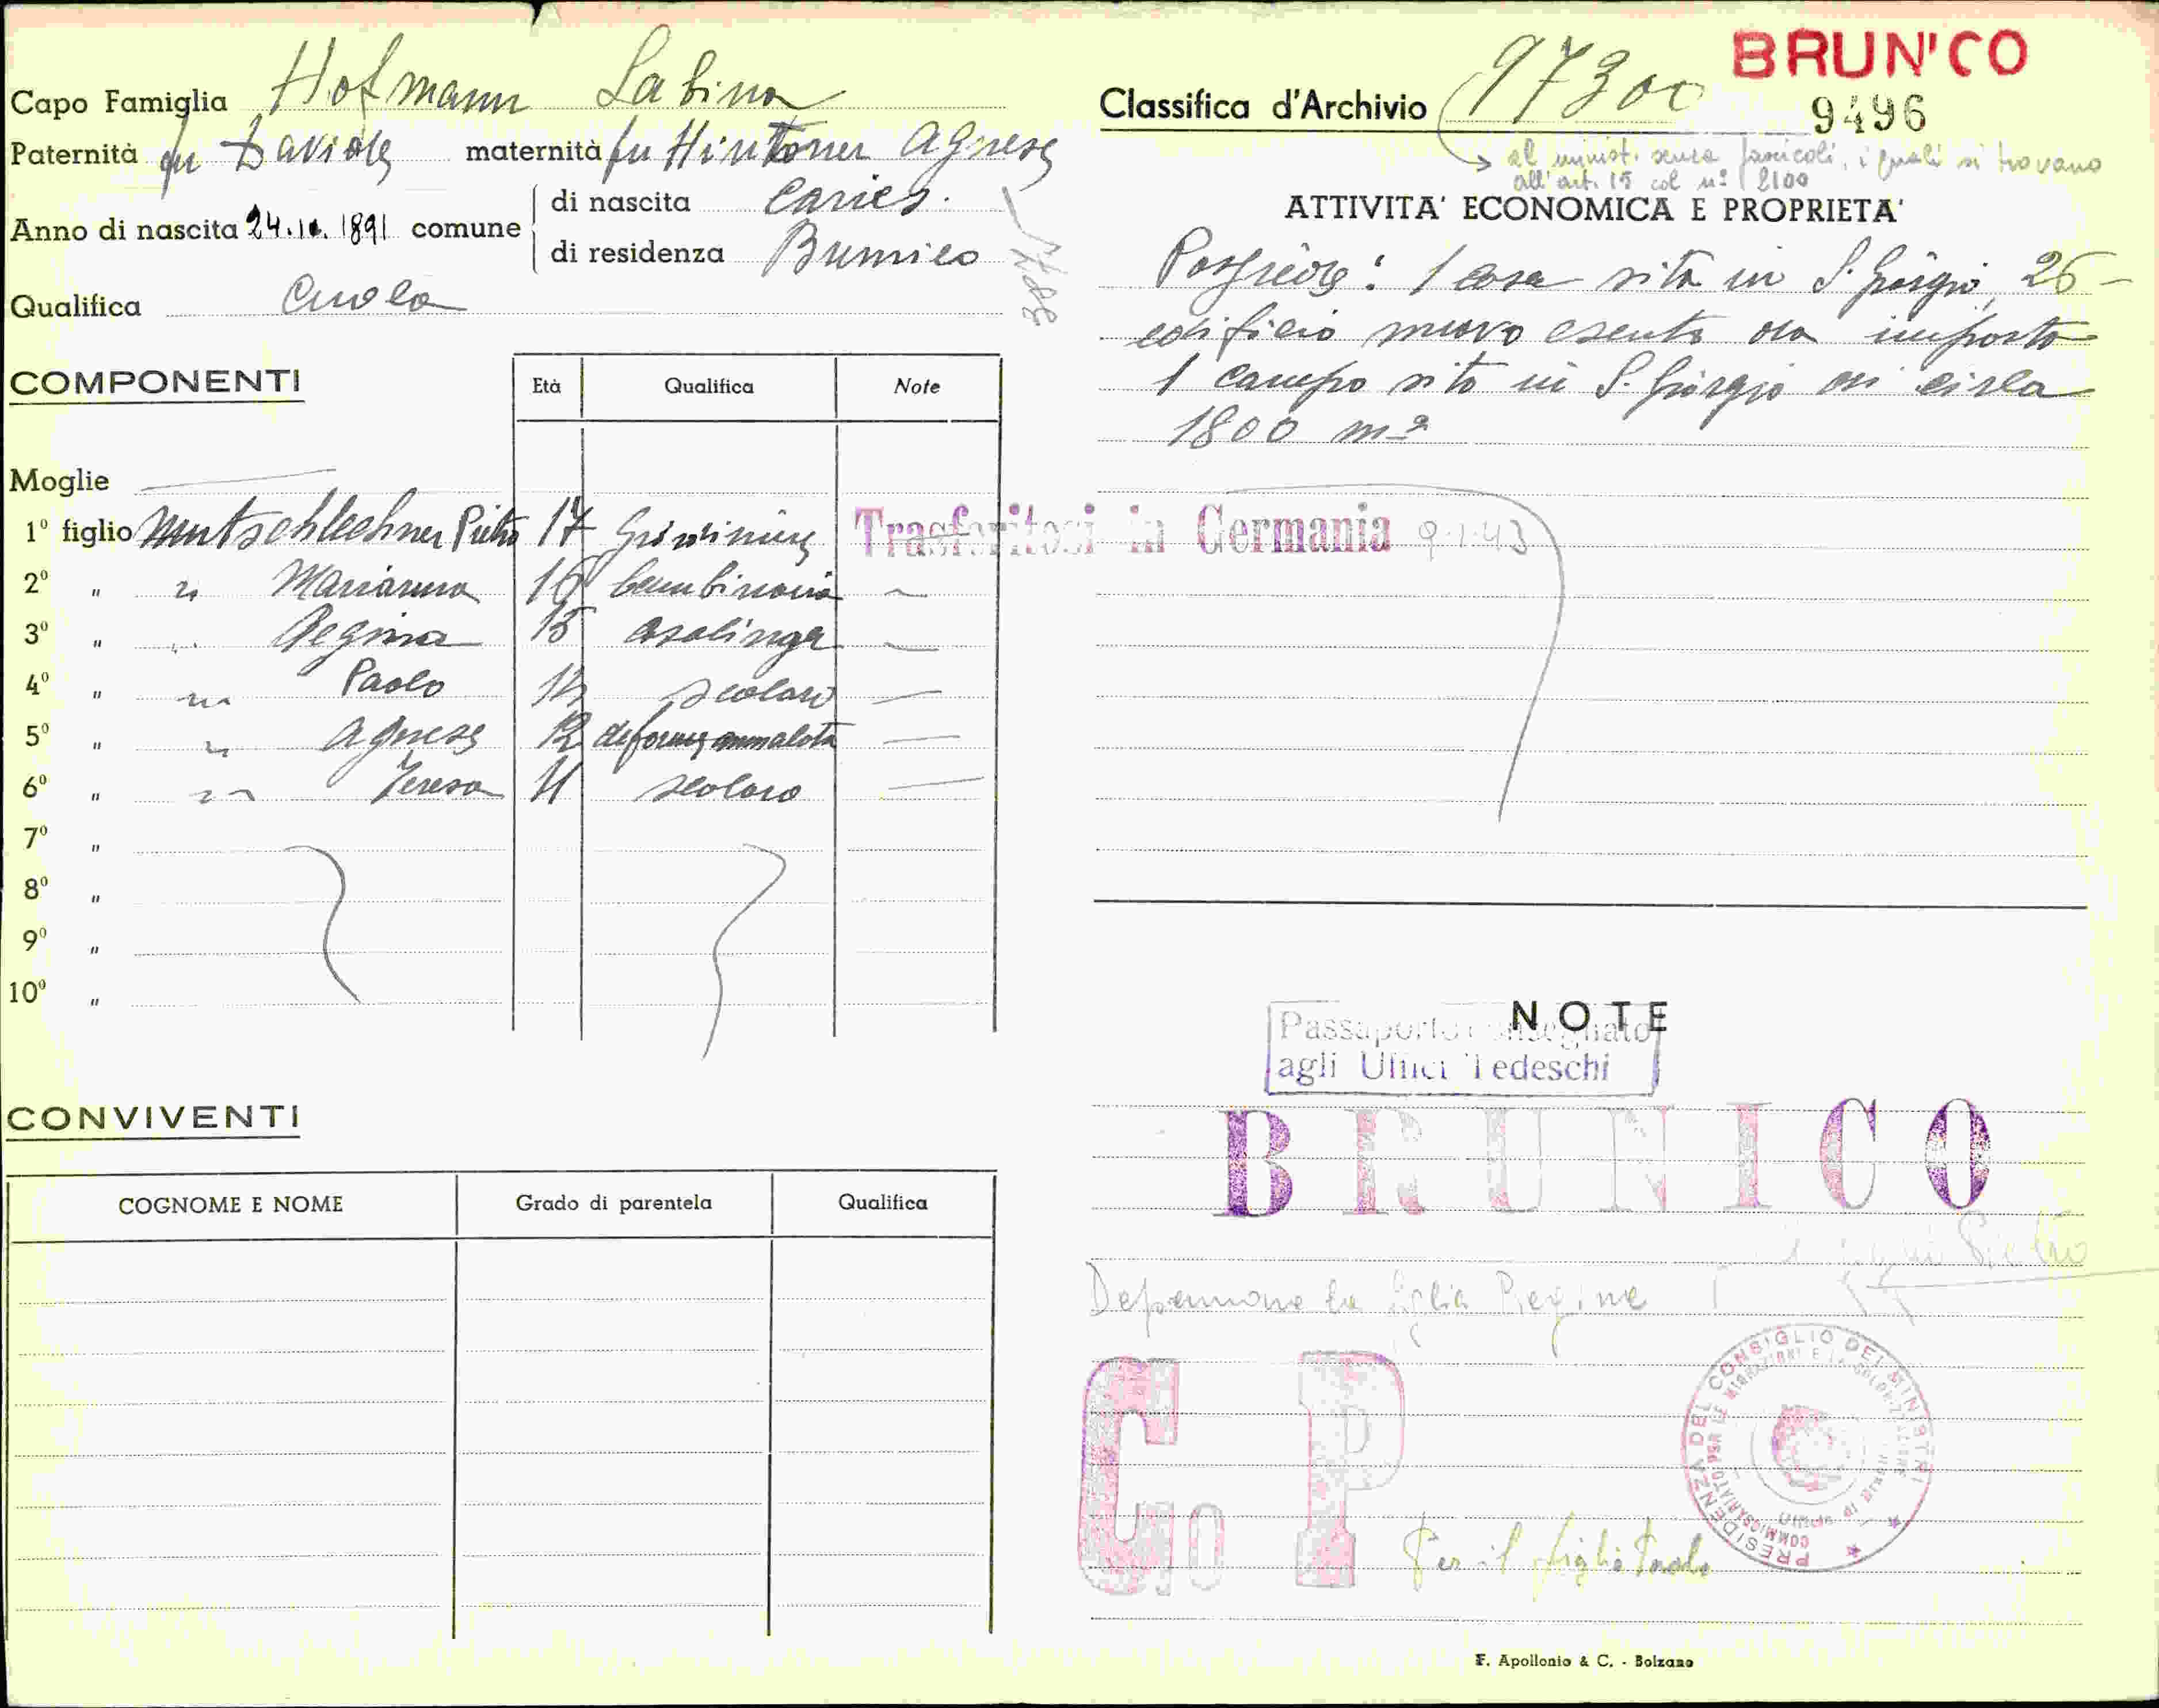 Capo Famiglia Hofmann Sabina
Paternità fu Davide maternità fu Hintner Agnese
Anno di nascita 24.10.1891 comune
di nascita Caries.
di residenza Brunico
Qualifica Cuoca
COMPONENTI
Età Qualifica Note
Moglie
1º figlio Mutschlechner Pietro 17 Trasferitosi in Germania 9.1.43
2º " " Marianna 16 bambinaia
3º " " Regina 15 casalinga
4º " " Paolo 14 scolaro
5º " " Agnese 12 deforme ammalata
6º " " Teresa 11 scolara
7º "
8º "
9º "
10º "
CONVIVENTI
COGNOME E NOME Grado di parentela Qualifica
BRUNICO
Classifica d'Archivio 97300 9496
al minist. senza fascicoli, i quali si trovano
all'art. 15 col nº 2100
ATTIVITA' ECONOMICA E PROPRIETA'
Possiede: 1 casa sita in S. Giorgio, 26 -
edificio nuovo esente da imposta
1 campo sito in S. Giorgio di circa
1800 m2
NOTE
Passaporto consegnato
agli Uffici Tedeschi
BRUNICO
Pietro
Depennare la figlia Regina
G P
PRESIDENZA DEL CONSIGLIO DEI MINISTRI
COMMISSARIATO PER LE MIGRAZIONI E LA COLONIZZAZIONE
Per il figlio Paolo
F. Apollonio & C. - Bolzano